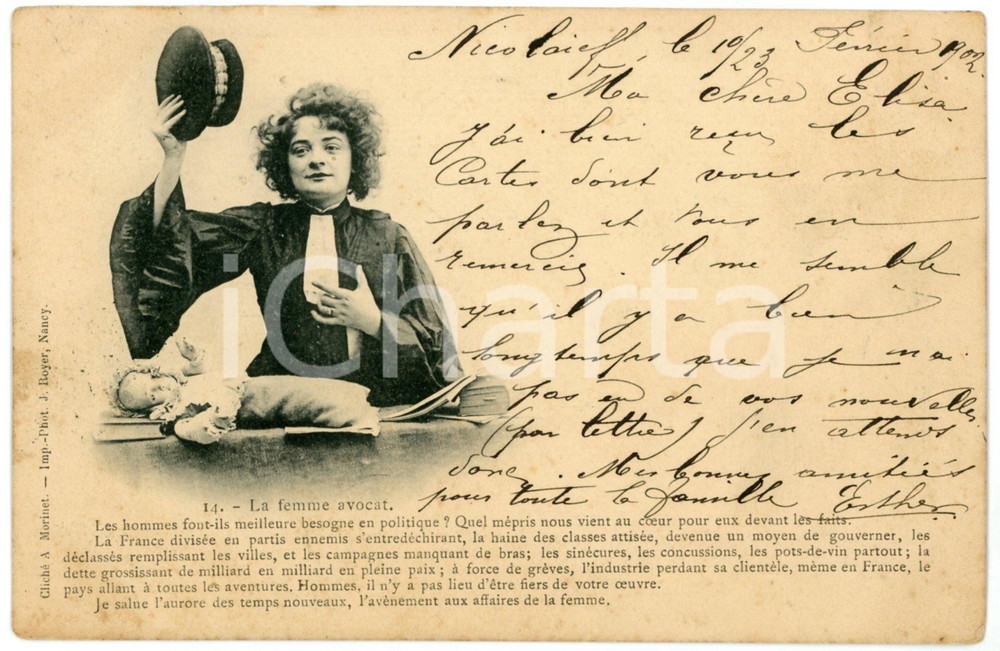 Nicolaieff, le 10/23 Février 1902.
Ma chère Elisa
J'ai bien reçu les
Cartes dont vous me
parlez et vous en
remercie. Il me semble
qu'il y a bien
longtemps que je n'ai
pas eu de vos nouvelles
(par lettre) J'en attends
donc. Mes bonnes amitiés
pour toute la famille Esther
iCharta
14. - La femme avocat.
Les hommes font-ils meilleure besogne en politique ? Quel mépris nous vient au cœur pour eux devant les faits.
La France divisée en partis ennemis s'entredéchirant, la haine des classes attisée, devenue un moyen de gouverner, les
déclassés remplissant les villes, et les campagnes manquant de bras; les sinécures, les concussions, les pots-de-vin partout; la
dette grossissant de milliard en milliard en pleine paix; à force de grèves, l'industrie perdant sa clientèle, même en France, le
pays allant à toutes les aventures. Hommes, il n'y a pas lieu d'être fiers de votre œuvre.
Je salue l'aurore des temps nouveaux, l'avènement aux affaires de la femme.
Cliché A Morinet. — Imp.-Phot. J. Royer, Nancy.